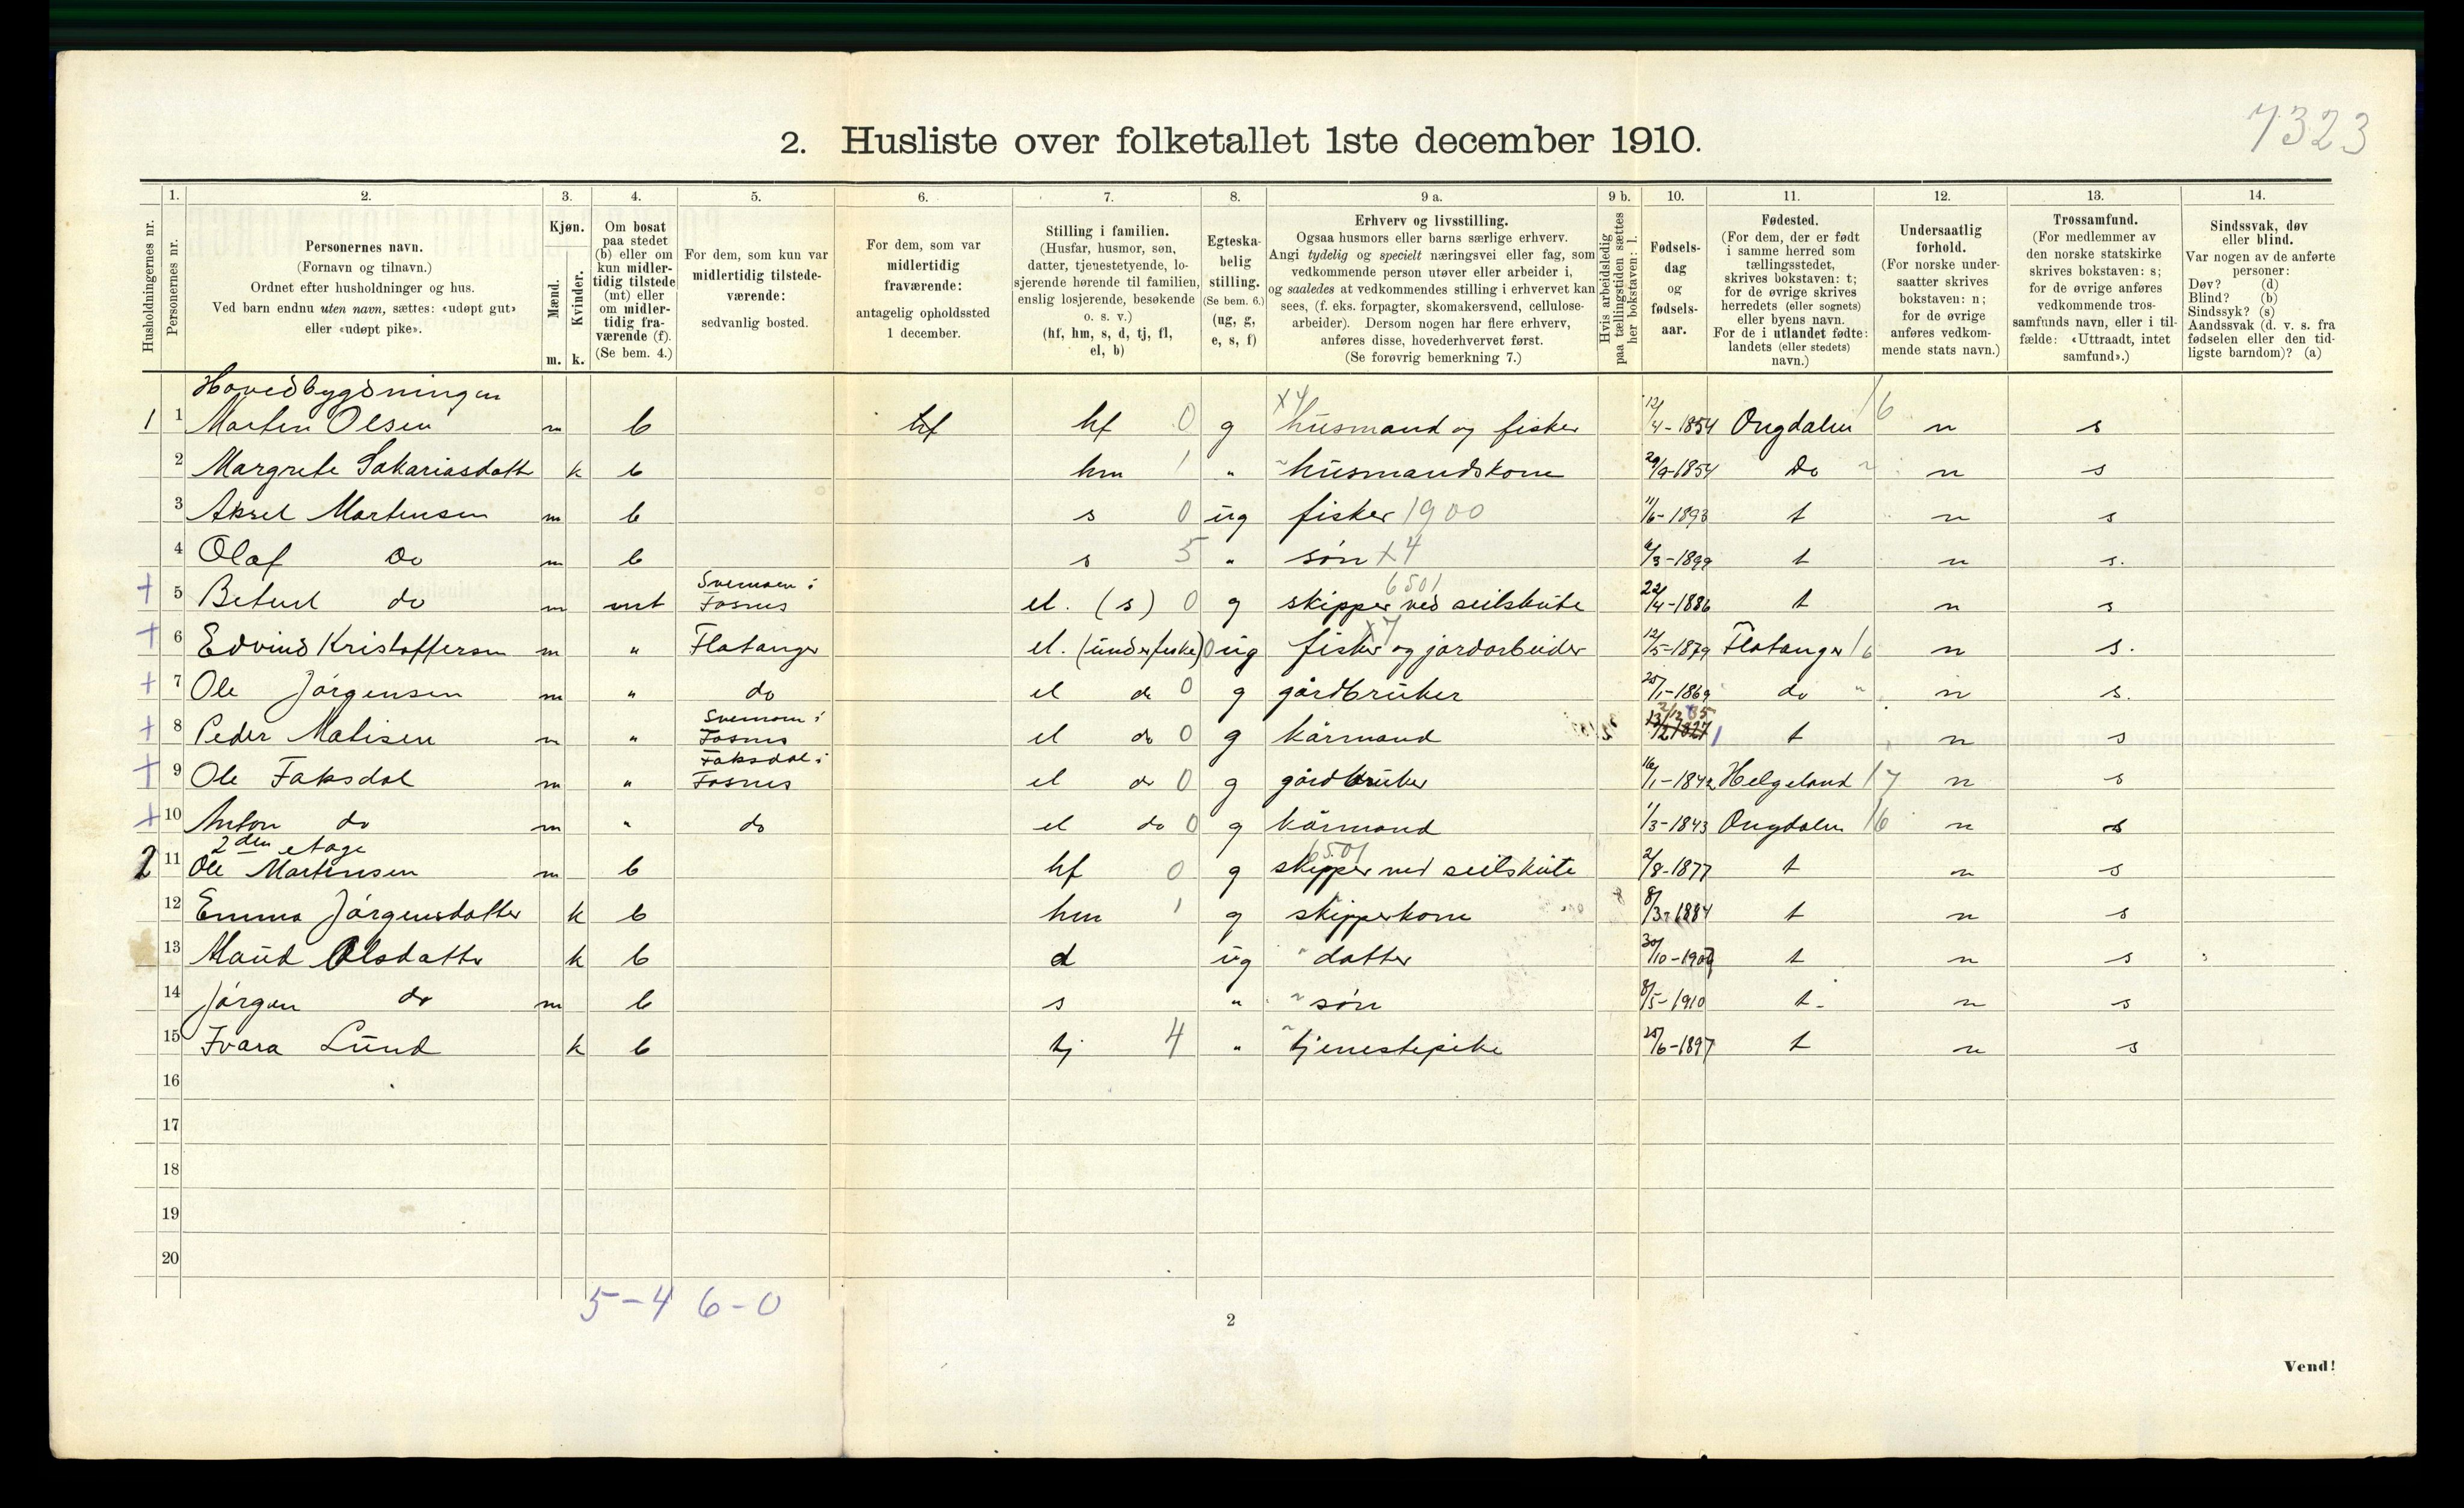 7323
2. Husliste over folketallet 1ste december 1910.
1. 2. 3. 4. 5. 6. 7. 8. 9 a. 9 b. 10. 11. 12. 13. 14.
Husholdningernes nr.
Personernes nr.
Personernes navn.
(Fornavn og tilnavn.)
Ordnet efter husholdninger og hus.
Ved barn endnu uten navn, sættes: «udøpt gut»
eller «udøpt pike».
Kjøn.
Mænd.
Kvinder.
m. k.
Om bosat
paa stedet
(b) eller om
kun midler-
tidig tilstede
(mt) eller
om midler-
tidig fra-
værende (f).
(Se bem. 4.)
For dem, som kun var
midlertidig tilstede-
værende:
sedvanlig bosted.
For dem, som var
midlertidig
fraværende:
antagelig opholdssted
1 december.
Stilling i familien.
(Husfar, husmor, søn,
datter, tjenestetyende, lo-
sjerende hørende til familien,
enslig losjerende, besøkende
o. s. v.)
(hf, hm, s, d, tj, fl,
el, b)
Egteska-
belig
stilling.
(Se bem. 6.)
(ug, g,
e, s, f)
Erhverv og livsstilling.
Ogsaa husmors eller barns særlige erhverv.
Angi tydelig og specielt næringsvei eller fag, som
vedkommende person utøver eller arbeider i,
og saaledes at vedkommendes stilling i erhvervet kan
sees, (f. eks. forpagter, skomakersvend, cellulose-
arbeider). Dersom nogen har flere erhverv,
anføres disse, hovederhvervet først.
(Se forøvrig bemerkning 7.)
Hvis arbeidsledig
paa tællingstiden sættes
her bokstaven: l.
Fødsels-
dag
og
fødsels-
aar.
Fødested.
(For dem, der er født
i samme herred som
tællingsstedet,
skrives bokstaven: t;
for de øvrige skrives
herredets (eller sognets)
eller byens navn.
For de i utlandet fødte:
landets (eller stedets)
navn.)
Undersaatlig
forhold.
(For norske under-
saatter skrives
bokstaven: n;
for de øvrige
anføres vedkom-
mende stats navn.)
Trossamfund.
(For medlemmer av
den norske statskirke
skrives bokstaven: s;
for de øvrige anføres
vedkommende tros-
samfunds navn, eller i til-
fælde: «Uttraadt, intet
samfund».)
Sindssvak, døv
eller blind.
Var nogen av de anførte
personer:
Døv? (d)
Blind? (b)
Sindssyk? (s)
Aandssvak (d. v. s. fra
fødselen eller den tid-
ligste barndom)? (a)
Hovedbygdningen
1 1 Morten Olsen m b hf hf 0 g x4 husmand og fisker 12/4-1854 Ongdalen 16 n s
2 Margrete Sakariasdatt k b hm 1 " husmandskone 29/9-1854 Do n s
3 Aksel Martensen m b s 0 ug fisker 1900 11/6-1893 t n s
4 Olaf Do m b s 5 " søn x4 6/3-1899 t n s.
+ 5 Betuel do m mt Svemoen i Fosnes el. (s) 0 g skipper ved seilskute 6501 22/4-1886 t n s
+ 6 Edvind Kristoffersen m " Flatanger el. (under fiske) 0 ug fisker og jordarbeider x7 12/5-1879 Flatanger 16 n s.
+ 7 Ole Jørgensen m " do el do 0 g gårdbruker 25/1-1869 do " n s.
+ 8 Peder Matisen m " Svemoen i Fosnes el do 0 g kårmand 13/2 1827 2/12 35 t n s
+ 9 Ole Faksdal m " Faksdal i Fosnes el do 0 g gårdbruker 16/1-1842 Helgeland 17 n s
+ 10 Anton do m " do el do 0 g kårmand 1/3-1843 Ongdalen 16 n s
2den etage
2 11 Ole Martinsen m b hf 0 g skipper ved seilskute 6501 2/8-1877 t n s
12 Emma Jørgensdatter k b hm 1 g skipperkone 8/3-1884 t n s
13 Maud Olsdatter k b d ug " datter 30/10-1907 t n s
14 Jørgen do m b s " " søn 8/5-1910 t. n s
15 Ivara Lund k b tj 4 " tjenestepike 25/6-1897 t n s
16
17
18
19
20
5-4 6-0
2
Vend!